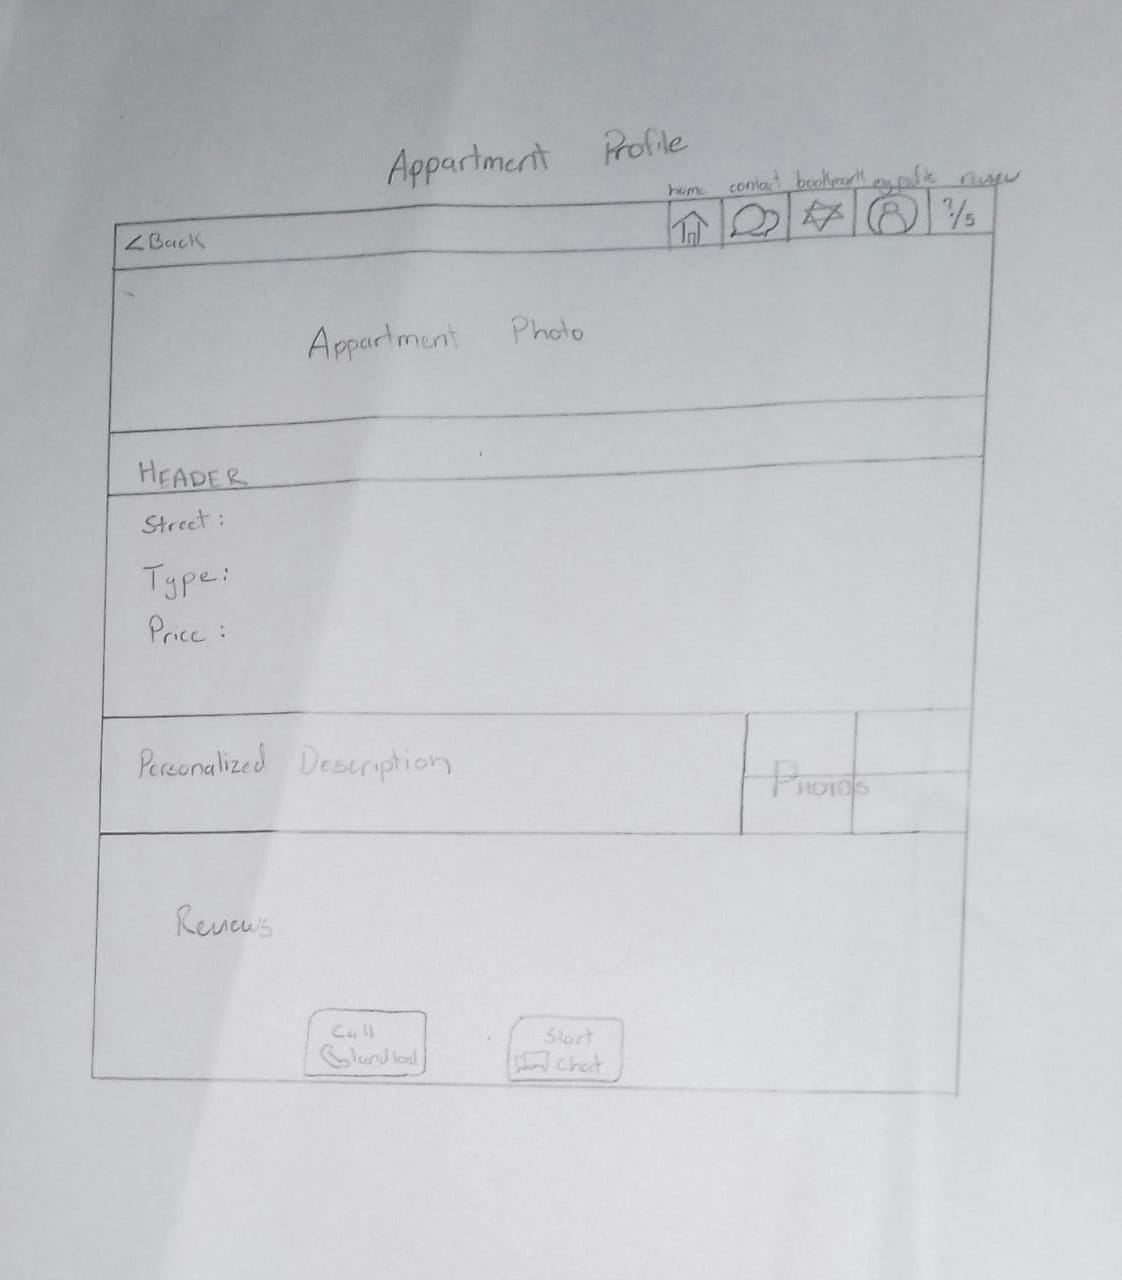 Appartment Profile
home contact bookmark my profile review
<Back
?/5
Appartment Photo
HEADER
Street :
Type:
Price :
Personalized Description
PHOTOS
Reviews
Call
landlord
Start
chat